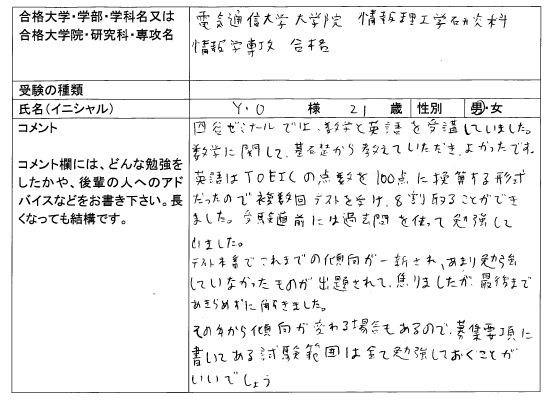 合格大学・学部・学科名又は
合格大学院・研究科・専攻名
電気通信大学大学院 情報理工学研究科
情報学専攻 合格
受験の種類
氏名(イニシャル) Y・O 様 21 歳 性別 男・女
コメント
コメント欄には、どんな勉強を
したかや、後輩の人へのアド
バイスなどをお書き下さい。長
くなっても結構です。
四谷ゼミナールでは、数学と英語を受講していました。
数学に関して、基礎から教えていただき、よかったです。
英語はTOEICの点数を100点に換算する形式
だったので複数回テストを受け、8割取ることができ
ました。受験直前には過去問を使って勉強して
いました。
テスト本番でこれまでの傾向が一新され、あまり勉強
していなかったものが出題されて、焦りましたが、最後まで
あきらめずに解きました。
その年から傾向が変わる場合もあるので、募集要項に
書いてある試験範囲は全て勉強しておくことが
いいでしょう